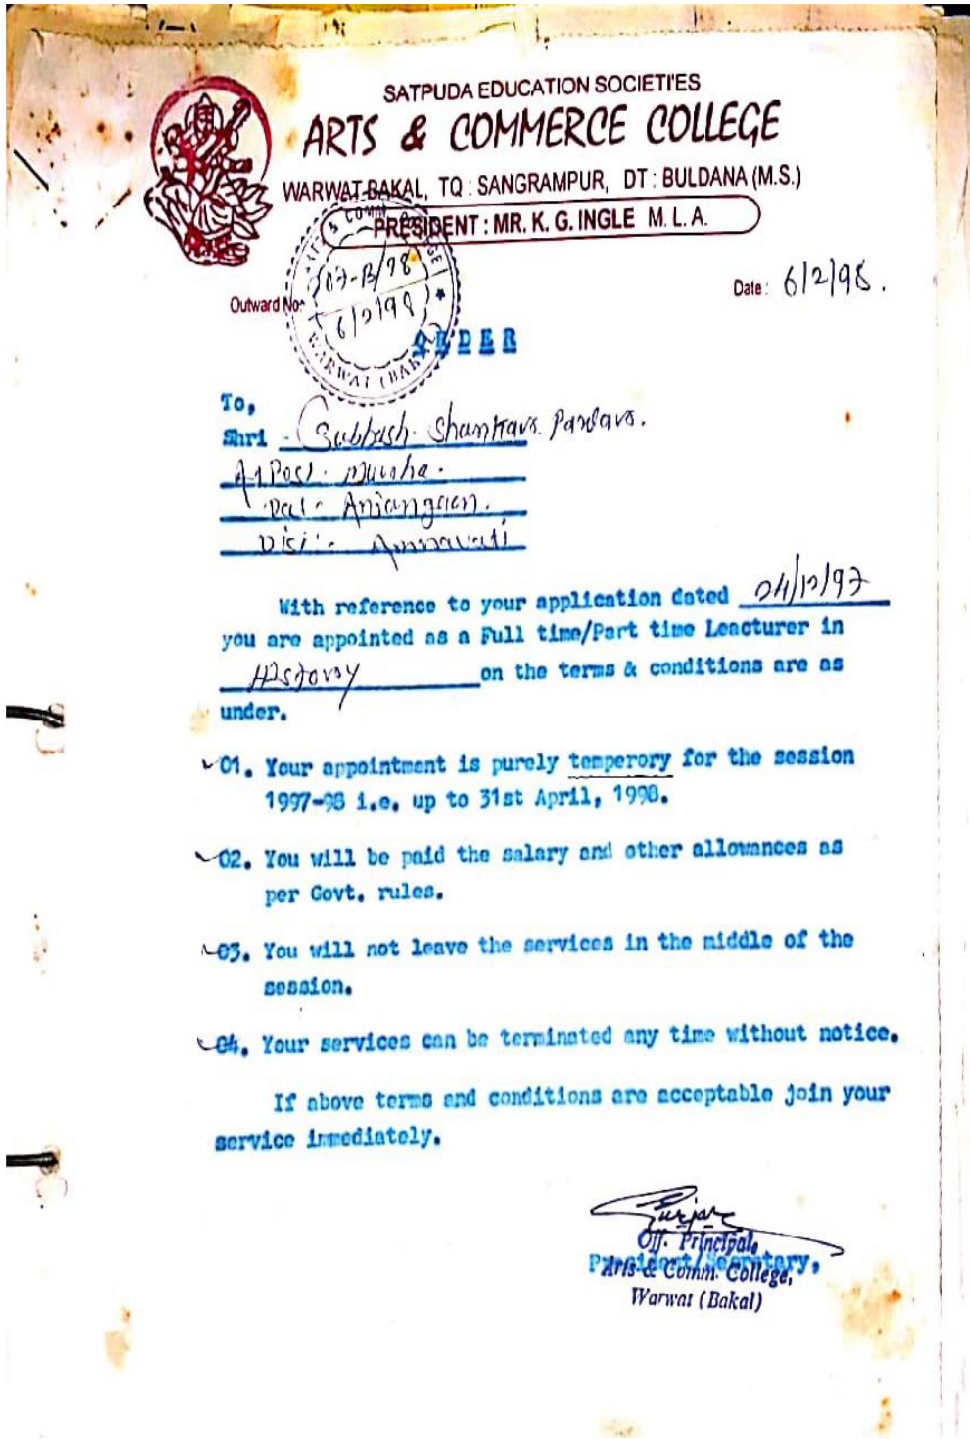 SATPUDA EDUCATION SOCIETI'ES
ARTS & COMMERCE COLLEGE
WARWAT-BAKAL, TQ : SANGRAMPUR, DT : BULDANA (M.S.)
PRESIDENT : MR. K. G. INGLE M. L. A.
Outward No:
6/2/98
WARWAT (BAKAL)
Date : 6/2/98.
ORDER
To,
Shri - Subhash Shankar
At Post.
Anjangaon.
Amravati
With reference to your application dated 04/12/97
you are appointed as a Full time/Part time Leacturer in
History on the terms & conditions are as
under.
01. Your appointment is purely temperory for the session
1997-98 i.e. up to 31st April, 1998.
02. You will be paid the salary and other allowances as
per Govt. rules.
03. You will not leave the services in the middle of the
session.
04. Your services can be terminated any time without notice.
If above terms and conditions are acceptable join your
service immediately.
Off. Principal,
President/Secretary,
Arts & Comm. College,
Warwat (Bakal)